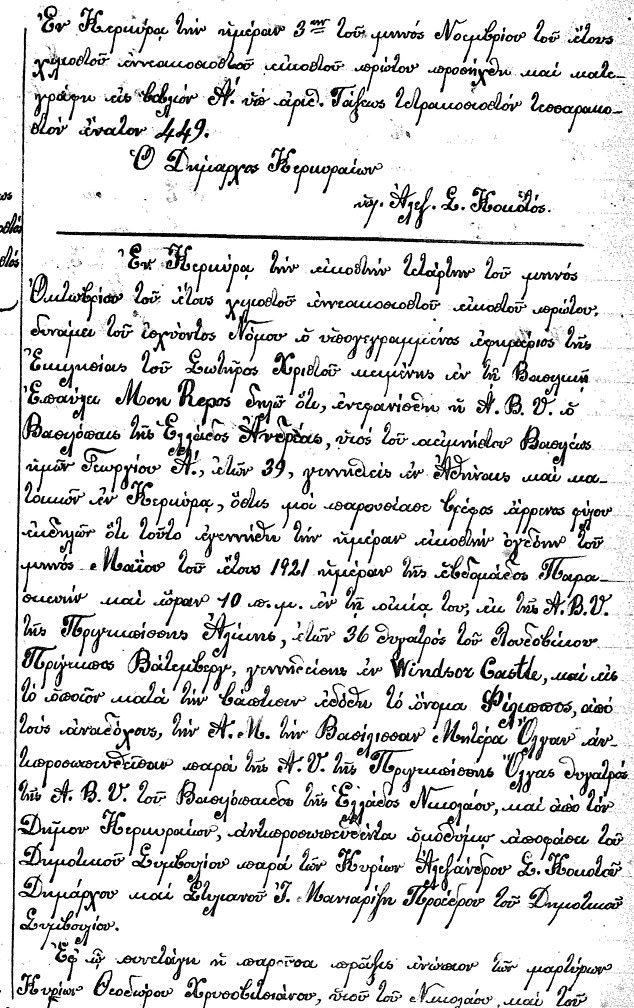 Ἐν Κερκύρᾳ τὴν ἡμέραν 3ην τοῦ μηνὸς Νοεμβρίου τοῦ ἔτους
χιλιοστοῦ ἐννεακοσιοστοῦ εἰκοστοῦ πρώτου προσήχθη καὶ κατε-
γράφη εἰς βιβλίον Α΄. ὑπ' ἀριθ. Τάξεως τετρακοσιοστὸν τεσσαρακο-
στὸν ἔνατον 449.
Ὁ Δήμαρχος Κερκυραίων
ὑπ. Ἀλεξ. Σ. Κοκοτός.
Ἐν Κερκύρᾳ τὴν εἰκοστὴν τετάρτην τοῦ μηνὸς
Ὀκτωβρίου τοῦ ἔτους χιλιοστοῦ ἐννεακοσιοστοῦ εἰκοστοῦ πρώτου,
δυνάμει τοῦ ἰσχύοντος Νόμου ὁ ὑπογεγραμμένος ἐφημέριος τῆς
Ἐκκλησίας τοῦ Σωτῆρος Χριστοῦ κειμένης ἐν τῇ Βασιλικῇ
Ἐπαύλει Mon Repos δηλῶ ὅτι, ἐνεφανίσθη ἡ Α. Β. Υ. ὁ
Βασιλόπαις τῆς Ἑλλάδος Ἀνδρέας, υἱὸς τοῦ ἀειμνήστου Βασιλέως
ἡμῶν Γεωργίου Α΄., ἐτῶν 39, γεννηθεὶς ἐν Ἀθήναις καὶ κα-
τοικῶν ἐν Κερκύρᾳ, ὅστις μοὶ παρουσίασε βρέφος ἄρρενος φύλου
ἐκδηλῶν ὅτι τοῦτο ἐγεννήθη τὴν ἡμέραν εἰκοστὴν ὀγδόην τοῦ
μηνὸς Μαΐου τοῦ ἔτους 1921 ἡμέραν τῆς ἑβδομάδος Παρα-
σκευὴν καὶ ὥραν 10 π.μ. ἐν τῇ οἰκίᾳ του, ἐκ τῆς Α.Β.Υ.
τῆς Πριγκιπίσσης Ἀλίκης, ἐτῶν 36 θυγατρὸς τοῦ Λουδοβίκου
Πρίγκιπος Βάτεμβεργ, γεννηθείσης ἐν Windsor Castle, καὶ εἰς
τὸ ὁποῖον κατὰ τὴν βάπτισιν ἐδόθη τὸ ὄνομα Φίλιππος, ἀπὸ
τοὺς ἀναδόχους, τὴν Α. Μ. τὴν Βασίλισσαν Μητέρα Ὄλγαν ἀν-
τιπροσωπευθεῖσαν παρὰ τῆς Α. Υ. τῆς Πριγκιπίσσης Ὄλγας θυγατρὸς
τῆς Α. Β. Υ. τοῦ Βασιλόπαιδος τῆς Ἑλλάδος Νικολάου, καὶ ἀπὸ τὸν
Δῆμον Κερκυραίων, ἀντιπροσωπευθέντα ὁμοθύμῳ ἀποφάσει τοῦ
Δημοτικοῦ Συμβουλίου παρὰ τῶν Κυρίων Ἀλεξάνδρου Σ. Κοκοτοῦ
Δημάρχου καὶ Στυλιανοῦ Ἰ. Μανιαρίζη Προέδρου τοῦ Δημοτικοῦ
Συμβουλίου.
Ἐφ' ᾧ συνετάγη ἡ παροῦσα πρᾶξις ἐνώπιον τῶν μαρτύρων
Κυρίων Θεοδώρου Χρυσοβιτσιάνου, υἱοῦ τοῦ Νικολάου, καὶ τοῦ